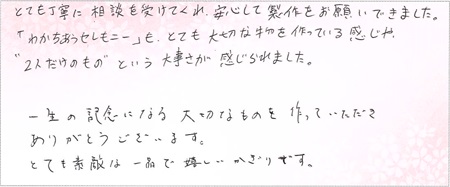 とても丁寧に相談を受けてくれ、安心して製作をお願いできました。
「わかちあうセレモニー」も、とても大切な物を作っている感じや
"2人だけのもの"という大事さが感じられました。
一生の記念になる大切なものを作っていただき
ありがとうございます。
とても素敵な一品で嬉しいかぎりです。